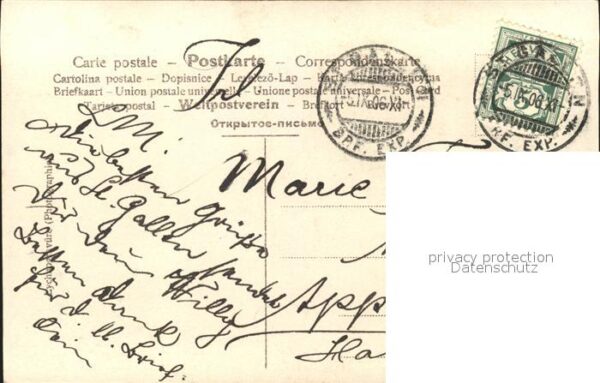 Carte postale – Postkarte – Correspondenzkarte
Cartolina postale – Dopisnice – Levelező-Lap – Karta korespondencyjna
Briefkaart – Union postale universelle – Unione postale universale – Postcard
Tarjeta postal – Weltpostverein – Brefkort – Brevkort
Открытое письмо
ST. GALLEN
-5.IX.06.XI
BRF. EXP.
ST. GALLEN
-5.IX.06.XI
BRF. EXP.
Frl.
Marie
App
Ha
L. M.
Die besten Grüsse
aus St. Gallen sendet
Dir Dein Willy
Besten Dank
für d. lb. Brief.
Dein
privacy protection
Datenschutz